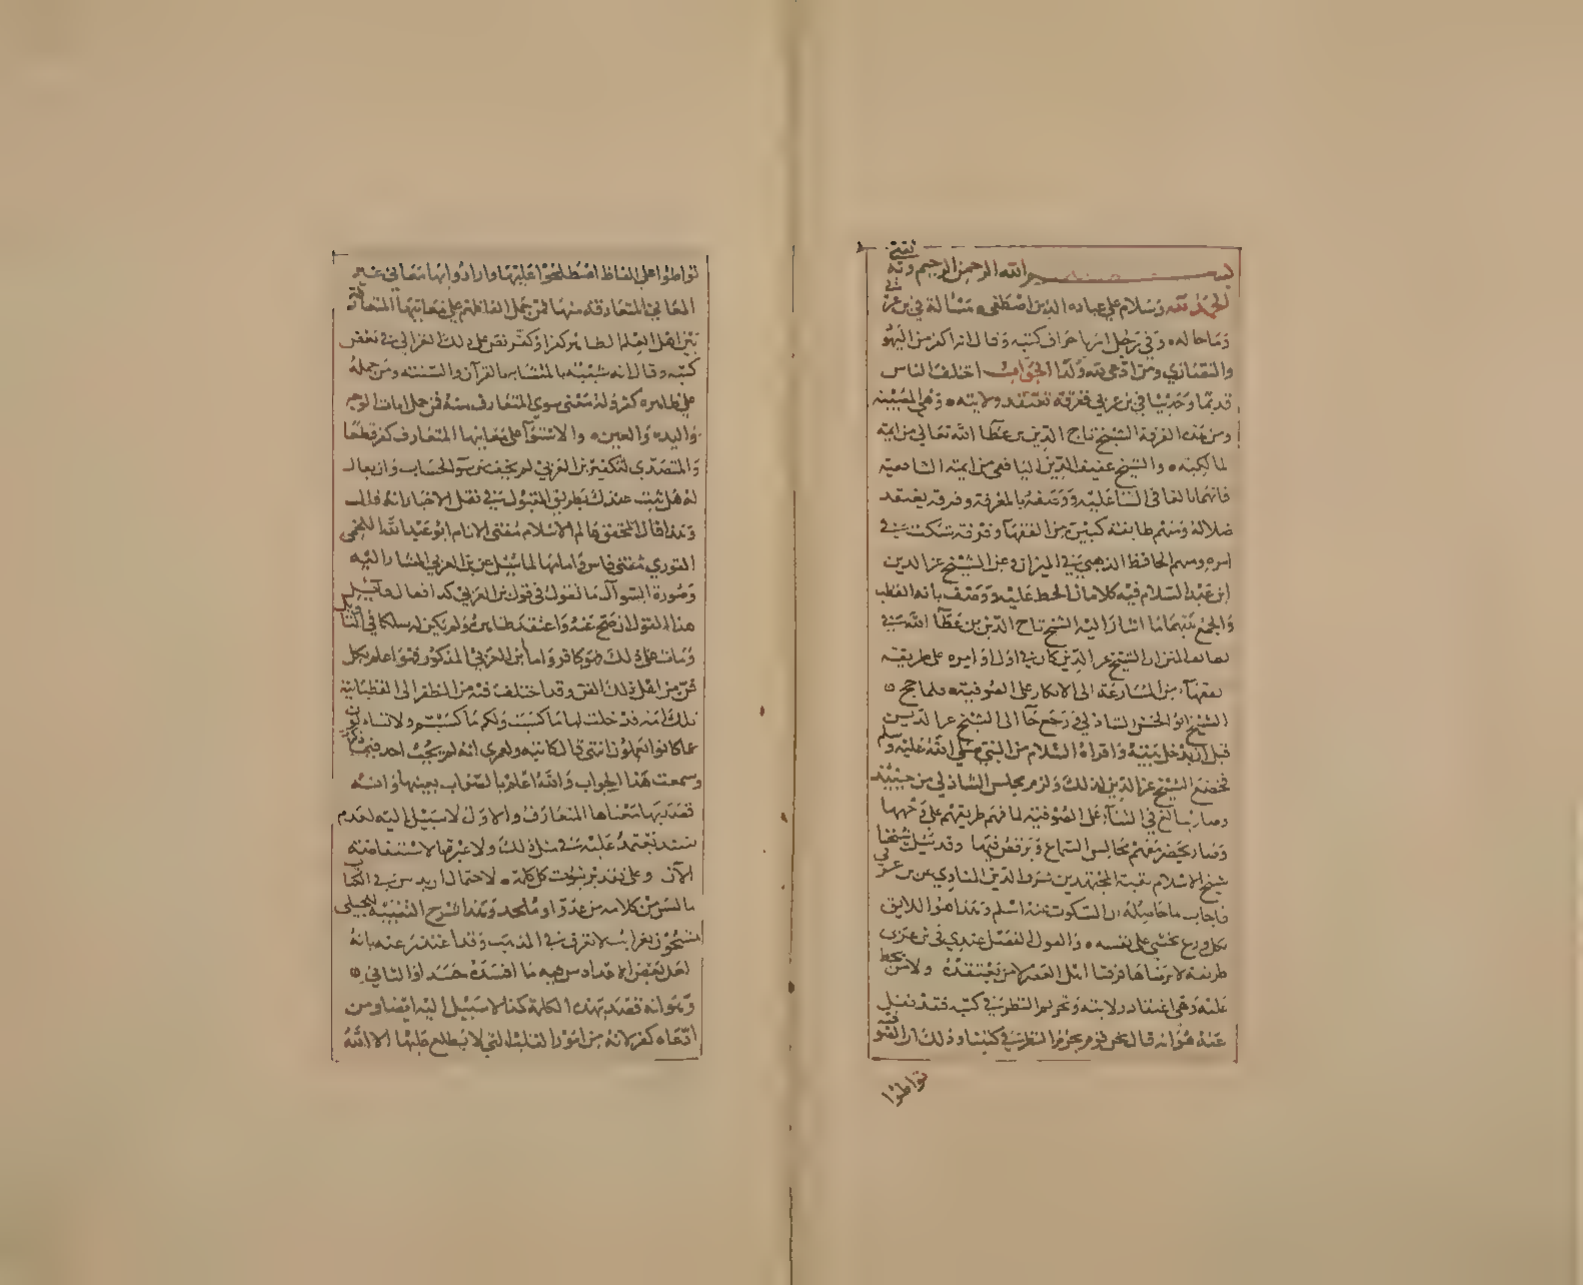 بسم الله الرحمن الرحيم وبه ثقتي
الحمد لله وسلام على عباده الذين اصطفى مسألة في بن عربي
وما حاله وفي رجل امر باحراق كتبه وقال انه اكفر من اليهود
والنصارى ومن ادعى لله ولدا الجواب اختلف الناس
قديما وحديثا في بن عربي ففرقة تعتقد ولايته وهي المصيبة
ومن هذه الفرقة الشيخ تاج الدين بن عطا الله تعالى من ايمة
المالكية والشيخ عفيف الدين اليافعي من ايمة الشافعية
فانهما بالغا في الثنا عليه ووصفه بالمعرفة وفرقة يعتقد
ضلاله ومنهم طايفة كبيرة من الفقهآ وفرقة شكت في
امره ومنهم الحافظ الذهبي في الميزان وعن الشيخ عز الدين
ابن عبد السلام فيه كلامان الحط عليه ووصفه بانه القطب
والجمع بينهما ما اشار اليه الشيخ تاج الدين بن عطآ الله في
ان الشيخ عز الدين كان في اول امره على طريقة
الفقهآء من المسارعة الى الانكار على الصوفية فلما حج
الشيخ ابو الحسن الشاذلي ورجع جآ الى الشيخ عز الدين
قبل ان يدخل بيته واقراه السلام من النبي صلى الله عليه وسلم
فخضع الشيخ عز الدين لذلك ولزم مجلس الشاذلي من حينئذ
وصار يبالغ في الثنآء على الصوفية لما فهم طريقتهم على وجهها
وصار يحضر معهم مجالس السماع ويرقص فيها وقد سئل شيخنا
شيخ الاسلام بقية المجتهدين شرف الدين المناوي عن بن عربي
فاجاب ما حاصله ان السكوت عنه اسلم وهذا هو اللايق
بكل ورع يخشى على نفسه والقول الفصل عندي في بن عربي
طريقة لا يرضاها فرقتا اهل العصر لا من يعتقده ولا من يحط
عليه وهي اعتقاد ولايته وتحريم النظر في كتبه فقد نقل
عنه هو انه قال نحن قوم يحرم النظر في كتبنا وذلك ان الصوفية
تواطوا
تواطوا على الفاظ اصطلحوا عليها وارادوا بها معاني غير
المعاني المتعارفة منها فمن حمل الفاظهم على معانيها المتعارفة
بين اهل العلم الظاهر كفر وكفر نص على ذلك الغزالي في بعض
كتبه وقال انه شبيه بالمتشابه بالقرآن والسنة ومن حمله
على ظاهره كفر وله معنى سوى المتعارف منه فمن حمل ايات الوجه
واليد والعين والاستوآ على معانيها المتعارف كفر قطعا
والمتصدي لتكفير بن العربي لم يخف من سوء الحساب وان يقال
له هل ثبت عندك بطريق المقبول في نقل الاخبار انه قال
وهذا قال المحقق عالم الاسلام مفتي الانام ابو عبد الله اللخمي
التوري مفتي فاس وامامها لما سئل عن بن العربي المشار اليه
وصورة السوآل ما تقول في قول بن العربي كذا فقال قآئل
هذا القول ان صح عنه واعتقد ظاهره ولم يكن له مسلكا في التاويل
ومات على ذلك فهو كافر واما بن العربي المذكور فهو اعلم بكل
فن من اهل ذلك الفن وقد اختلف فيه من الكفر الى القطبانية
تلك امة قد خلت لها ما كسبت ولكم ما كسبتم ولا تسالون
عما كانوا يعملون انتهى قال كاتبه ولعمري انه لم يجب احد فيما ذكرت
وسمعت هذا الجواب والله اعلم بالصواب بعينها وانه
قصد بها معناها المتعارف والاول لا سبيل اليه لعدم
سند يعتمد عليه في مثل ذلك ولا عبرة بالاستفاضة
الآن وعلى تقدير ثبوت كل كلمة لاحتمال ان يدس في الكتاب
ما ليس من كلامه من عدو او ملحد وهذا شرح التنبيه للجيلي
مشحون بغرايب لا تعرف في المذهب وقد اعتذر عنه بانه
لعل بعض الاعداد دس فيه ما افسده حسدا والثاني
وهو انه قصد بهذه الكلمة كذا لا سبيل اليه ايضا ومن
ادعاه كفر لانه من امور القلب التي لا يطلع عليها الا الله